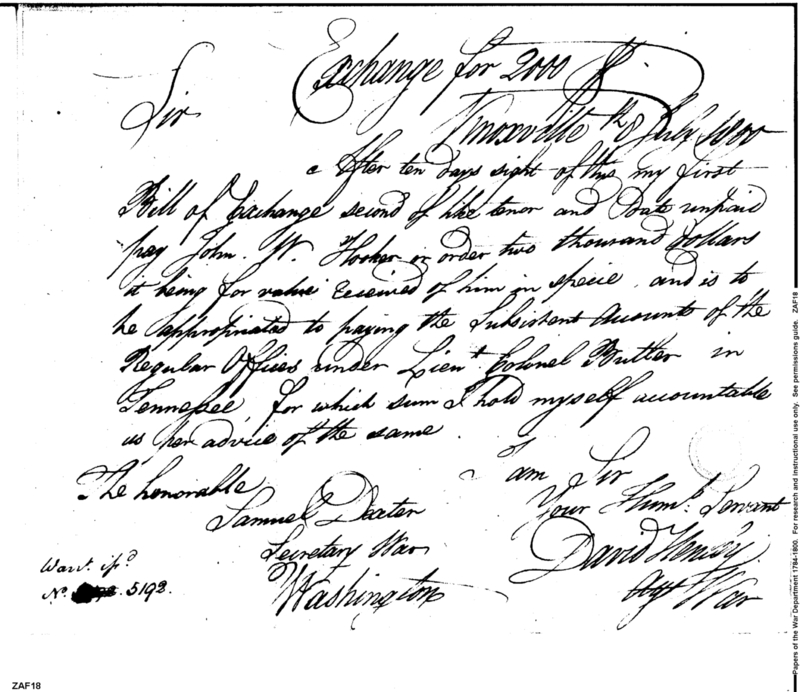 Exchange for 2000 $.
Sir
Knoxville 8th July 1800
After ten days sight of this my first
Bill of Exchange second of like tenor and Date unpaid
pay John. W. Hooker or order two thousand Dollars
it being for value Received of him in specie, and is to
be appropriated to paying the Subsistent Accounts of the
Regular Offices under Lieut Colonel Butler in
Tennessee, for which sum I hold myself accountable
as per advice of the same.
I am Sir
The honorable
Your Humb. Servant
Samuel Dexter
Secretary War
David Henley
Washington
Agt War
Warr. issd
No. 5192.
ZAF18
Papers of the War Department 1784-1800. For research and instructional use only. See permissions guide. ZAF18